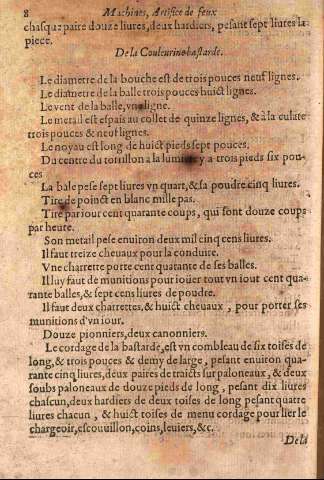 8 Machines, Artifice de feux
chasque paire douze liures, deux hardiers, pesant sept liures la
piece.
De la Couleurine bastarde.
Le diametre de la bouche est de trois pouces neuf lignes.
Le diametre de la balle trois pouces huict lignes.
Le vent de la balle, vne ligne.
Le metail est espais au collet de quinze lignes, & à la culate
trois pouces & neuf lignes.
Le noyau est long de huict pieds sept pouces.
Du centre du torillon a la lumiere y a trois pieds six pou-
ces
La bale pese sept liures vn quart, & sa poudre cinq liures.
Tire de poinct en blanc mille pas.
Tire par iour cent quarante coups, qui sont douze coups
par heure.
Son metail pese enuiron deux mil cinq cens liures.
Il faut treize cheuaux pour la conduite.
Vne charrette porte cent quatante de ses balles.
Il luy faut de munitions pour ioüer tout vn iout cent qua-
rante balles, & sept cens liures de poudre.
Il faut deux charrettes, & huict cheuaux, pour porter ses
munitions d'vn iour.
Douze pionniers, deux canonniers.
Le cordage de la bastarde, est vn combleau de six toises de
long, & trois pouces & demy de large, pesant enuiron qua-
rante cinq liures, deux paires de traicts sur paloneaux, & deux
soubs paloneaux de douze pieds de long, pesant dix liures
chascun, deux hardiers de deux toises de long pesant quatre
liures chacun, & huict toises de menu cordage pour lier le
chargeoir, escouuillon, coins, leuiers, &c.
De la